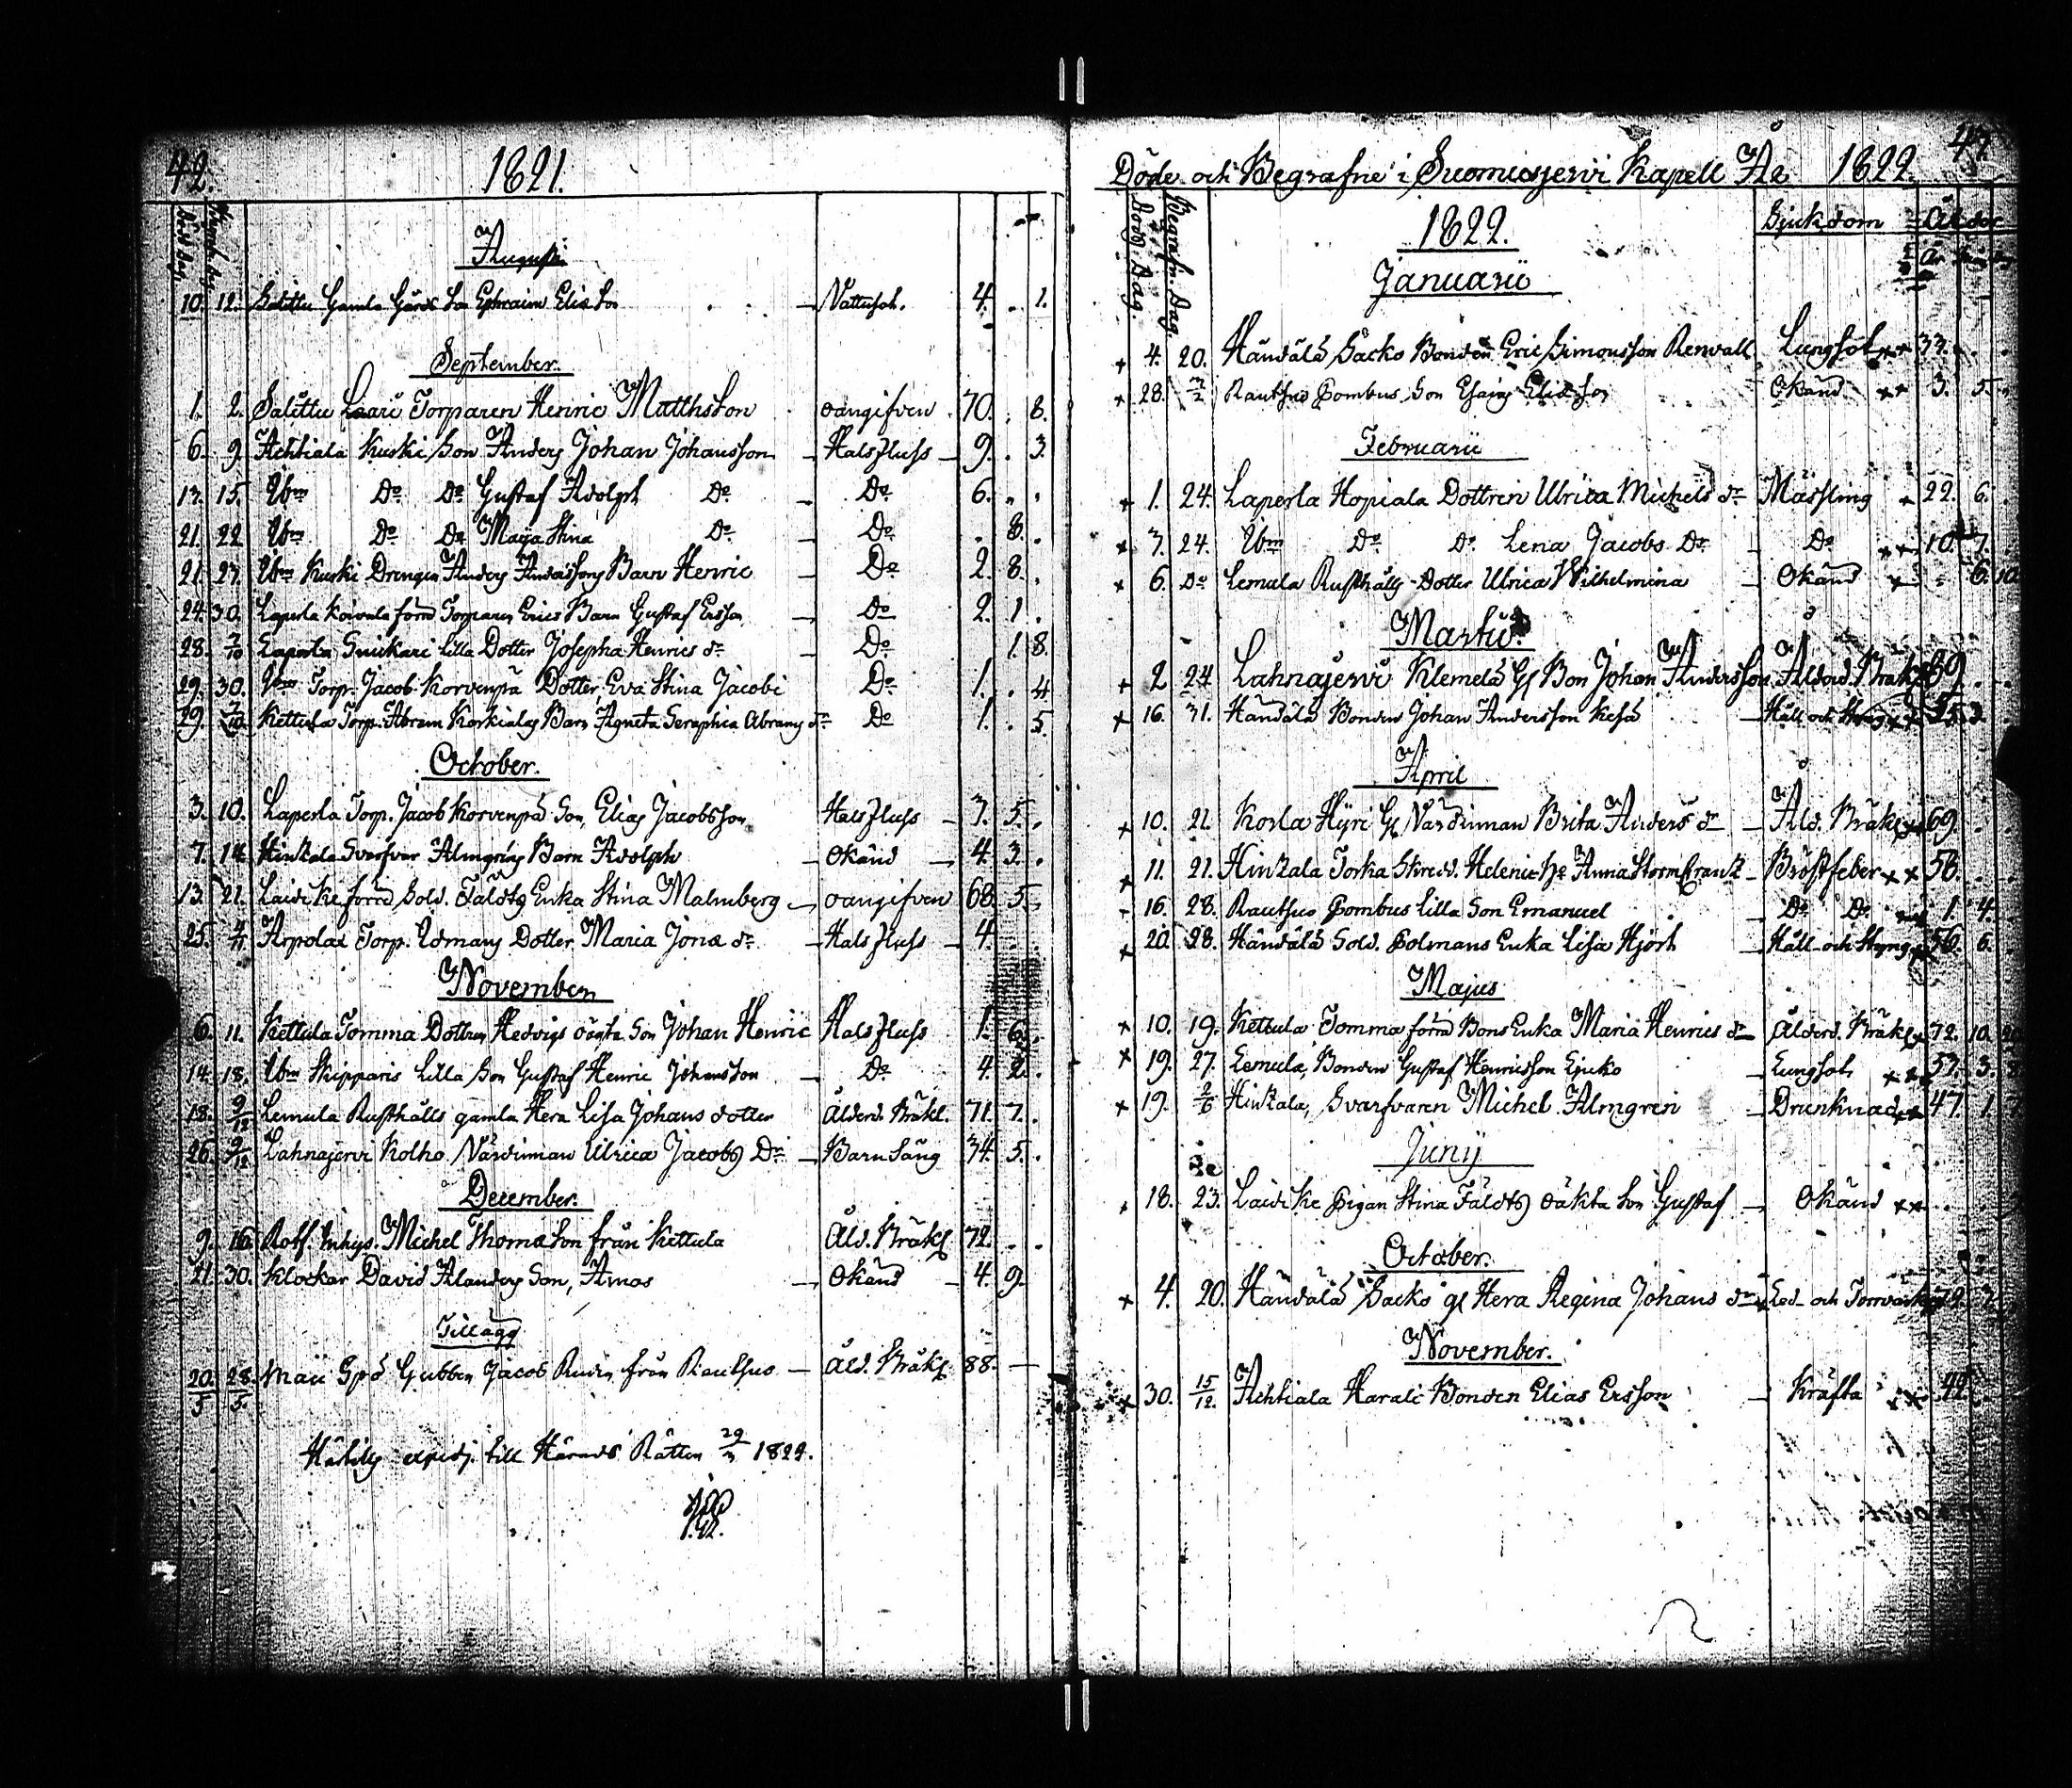 42.
1821.
Död Dag.
Augusti
10. 12. Salittu Gamla Gårds Son Ephraim Eliæ Son — Vattusot. 4. . 1.
September.
1. 2. Salittu Laari Torparen Henric Matthsson oangifven 70. . 8.
6. 9. Achtiala Kuski Son Anders Johan Johansson — Halsfluss — 9. . 3.
13. 15. Ibm Do Do Gustaf Adolph Do — Do 6. . .
21. 22 Ibm Do Do Maja Stina Do — Do . 8. .
21. 23. Ibm Kuski Drengen Anders Anderssons Barn Henric — Do 2. 8. .
24. 30. Laperla Koivula förra Torparen Erics Barn Gustaf Ersson — Do 2. 1 .
28. 7/10 Laperla Snickari lilla Dotter Josepha Henrics dr — Do 1. 8.
29. 30. Ibm Torp. Jacob Korvenpä Dotter Eva Stina Jacobi Do 1. . 4
29. 7/10 Kettula Torp. Abram Korkialas Barn Agneta Seraphia Abrams dr Do 1. . 5.
October.
3. 10. Laperla Torp. Jacob Korvenpä Son, Elias Jacobsson Halsfluss — 3. 5. .
7. 14. Hintala Svarfvar Almgrens Barn Adolph — Okänd — 4. 3. .
13. 21. Laidike förra Sold. Fäldts Enka Stina Malmberg — oangifven 68. 5.
25. 4/11 Arpolax Torp. Udmans Dotter Maria Jonæ dr — Halsfluss — 4.
November
6. 11. Kettula Tomma Dottren Hedvigs oägta Son Johan Henric Halsfluss 1. 6.
14. 18. Ibm Skipparis Lilla Son Gustaf Henric Johansson — Do 4. 2. .
18. 9/12 Lemula Rusthålls gamla Hera Lisa Johans dotter Ålderd. Bräkl. 71. 7. .
26. 9/12 Lahnajervi Kolho Värdinnan Ulrica Jacobs Dr — Barn Säng 34. 5. .
December.
9. 16. Rotf. Inhys. Michel Thomæ Son från Kettula Åld. Bräkl 72. . .
21. 30. Klockar David Alanders Son, Amos — Okänd — 4. 9.
Tillägg
20/5 28/5. Maii Gubben Jacob från Rauthsuo — Åld. Bräkl. 88. —
Häktills till Härads Rätten 29/3 1822.
47.
Döde och Begrafne i Suomusjervi Kapell År 1822.
Död. Dag. Begrafn. Dag. 1822. Sjukdom Ålder
År
Januarii
4. 20. Händälä Säcko Bonden Eric Simonsson Renvall Lungsot 33. . .
28. 3/2 Rauthsuo Pombus Son Esaias Eliæ Son Okänd 3. 5.
Februarii
1. 24. Laperla Hopiala Dottren Ulrica Michels dr Mässling 22. 6.
3. 24. Ibm Do Do Lena Jacobs Dr — Do 10. 7.
6. Do Lemula Rusthålls Dotter Ulrica Wilhelmina — Okänd . 6. 10.
Martii
2 24 Lahnajervi Klemelä Gl Bon Johan Andersson Ålderd. Bräkl. 69. .
16. 31. Händälä Bonden Johan Andersson Kesä — Håll och Styng 25 3.
April
10. 21. Korla Hyri Gl Värdinnan Brita Anders dr — Åld. Bräkl 69.
11. 21. Hintala Torka Skredd. Helenii Ho Anna Stormkrantz — Bröstfeber 58.
16. 28. Rauthsuo Pombus Lilla Son Emanuel Do Do 1. 4.
20. 28. Händälä Sold. Bolmans Enka Lisa Hjort — Håll och Styng 56. 6.
Majus
10. 19. Kettula Tomma förra Bons Enka Maria Henrics dr Ålderd. Bräkl 72. 10.
19. 27. Lemula, Bonden Gustaf Henricsson — Lungsot, 57. 3. 8.
19. 2/6 Hintala, Svarfvaren Michel Almgren — Drunknad 47. 1.
Junij
18. 23. Laidike Pigan Stina Fäldts oäkta Son Gustaf — Okänd
October.
4. 20. Händälä Säcko gl Hera Regina Johans dr
November.
30. 15/12. Achtiala Harali Bonden Elias Ersson — Kräfta 42.